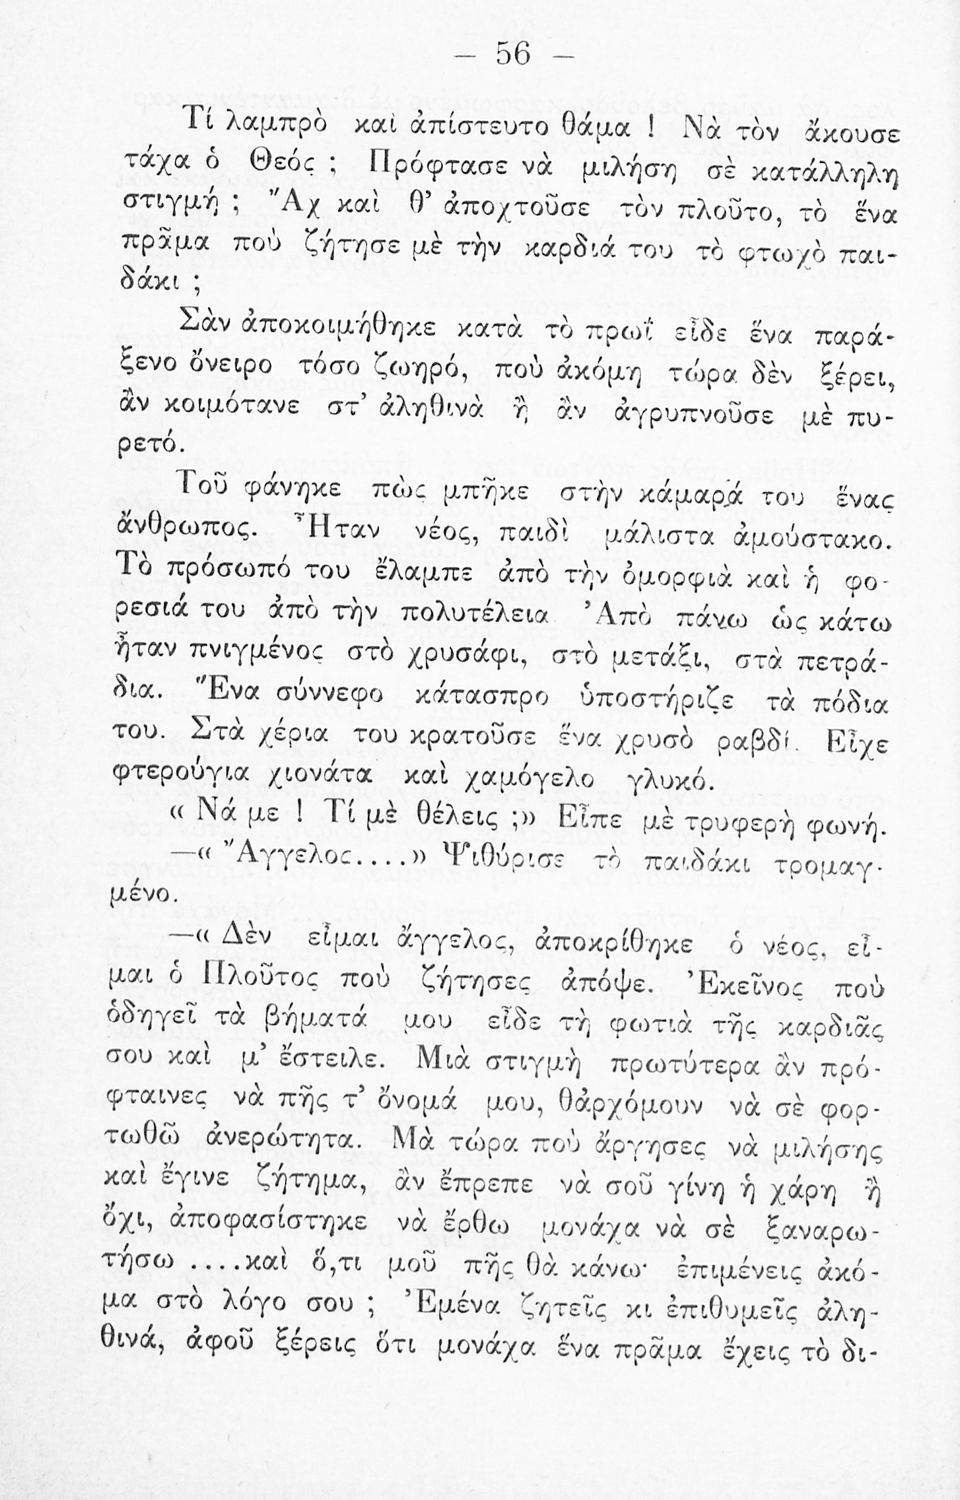 — 56 —
Τί λαμπρὸ καὶ ἀπίστευτο θάμα ! Νὰ τὸν ἄκουσε
τάχα ὁ Θεός ; Πρόφτασε νὰ μιλήση σὲ κατάλληλη
στιγμή ; Ἂχ καὶ θ’ ἀποχτοῦσε τὸν πλοῦτο, τὸ ἕνα
πρᾶμα ποὺ ζήτησε μὲ τὴν καρδιά του τὸ φτωχὸ παι-
δάκι ;
Σὰν ἀποκοιμήθηκε κατὰ τὸ πρωῒ εἶδε ἕνα παρά-
ξενο ὄνειρο τόσο ζωηρό, ποὺ ἀκόμη τώρα δὲν ξέρει,
ἂν κοιμότανε στ’ ἀληθινὰ ἢ ἂν ἀγρυπνοῦσε μὲ πυ-
ρετό.
Τοῦ φάνηκε πὼς μπῆκε στὴν κάμαρά του ἕνας
ἄνθρωπος. Ἦταν νέος, παιδὶ μάλιστα ἀμούστακο.
Τὸ πρόσωπό του ἔλαμπε ἀπὸ τὴν ὀμορφιὰ καὶ ἡ φο-
ρεσιά του ἀπὸ τὴν πολυτέλεια Ἀπὸ πάνω ὡς κάτω
ἦταν πνιγμένος στὸ χρυσάφι, στὸ μετάξι, στὰ πετρά-
δια. Ἕνα σύννεφο κάτασπρο ὑποστήριζε τὰ πόδια
του. Στὰ χέρια του κρατοῦσε ἕνα χρυσὸ ραβδί. Εἶχε
φτερούγια χιονάτα καὶ χαμόγελο γλυκό.
« Νά με ! Τί μὲ θέλεις ;» Εἶπε μὲ τρυφερὴ φωνή.
—« Ἄγγελος....» Ψιθύρισε τὸ παιδάκι τρομαγ-
μένο.
—« Δὲν εἶμαι ἄγγελος, ἀποκρίθηκε ὁ νέος, εἶ-
μαι ὁ Πλοῦτος ποὺ ζήτησες ἀπόψε. Ἐκεῖνος ποὺ
ὁδηγεῖ τὰ βήματά μου εἶδε τὴ φωτιὰ τῆς καρδιᾶς
σου καὶ μ’ ἔστειλε. Μιὰ στιγμὴ πρωτύτερα ἂν πρό-
φταινες νὰ πῆς τ’ ὄνομά μου, θἀρχόμουν νὰ σὲ φορ-
τωθῶ ἀνερώτητα. Μὰ τώρα ποὺ ἄργησες νὰ μιλήσης
καὶ ἔγινε ζήτημα, ἂν ἔπρεπε νὰ σοῦ γίνη ἡ χάρη ἢ
ὄχι, ἀποφασίστηκε νὰ ἔρθω μονάχα νὰ σὲ ξαναρω-
τήσω ....καὶ ὅ,τι μοῦ πῆς θὰ κάνω· ἐπιμένεις ἀκό-
μα στὸ λόγο σου ; Ἐμένα ζητεῖς κι ἐπιθυμεῖς ἀλη-
θινά, ἀφοῦ ξέρεις ὅτι μονάχα ἕνα πρᾶμα ἔχεις τὸ δι-